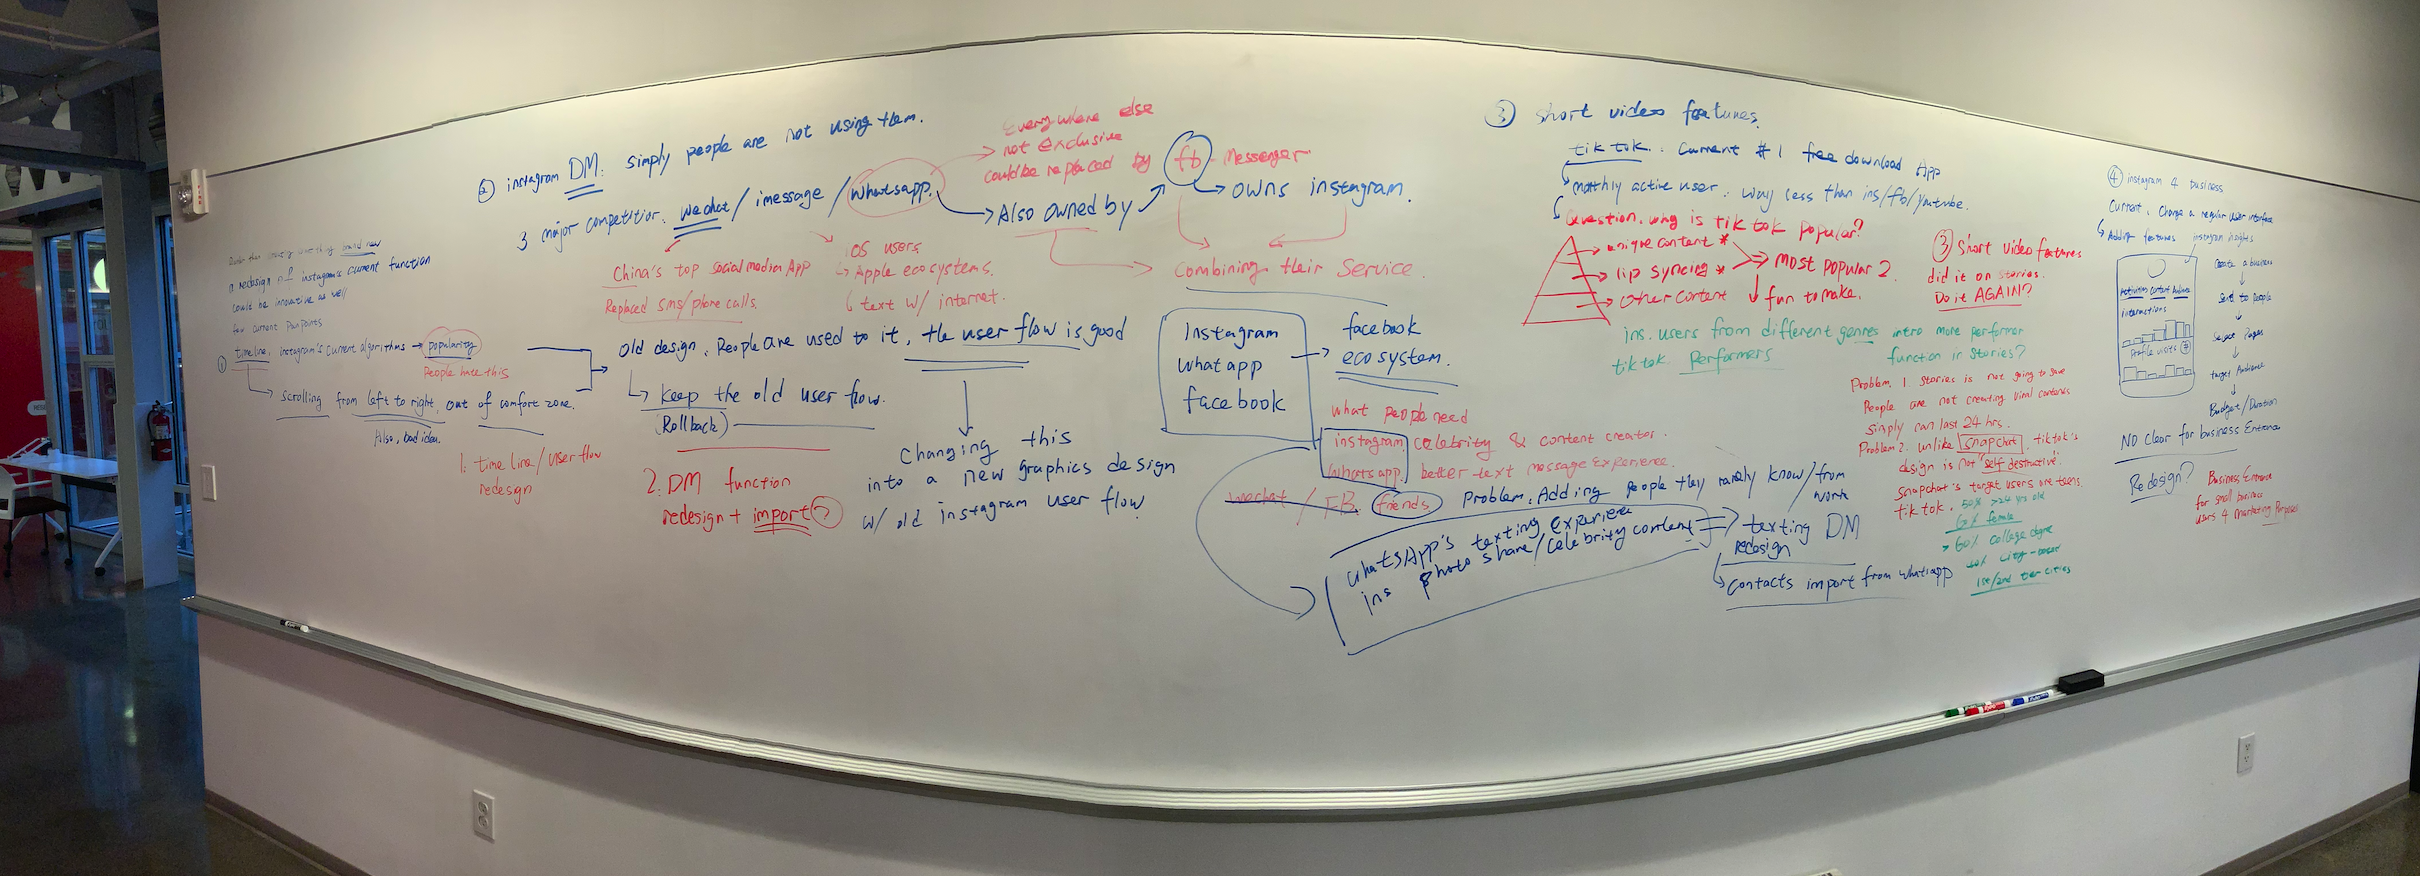 brand new
a redesign of instagram's current function
could be innovative as well
few current painpoints
① timeline, instagram's current algorithms → popularity
People hate this
scrolling from left to right, out of comfort zone.
Also, bad idea.
1. time line / user flow
redesign
② instagram DM: simply people are not using them.
3 major competitior. wechat / imessage / whatsapp.
China's top social media App
Replaced sms/phone calls.
iOS users
Apple ecosystems.
text w/ internet.
Everywhere else
not exclusive
could be replaced by fb Messenger
Also owned by
owns instagram.
combining their service
old design, People are used to it, the user flow is good
keep the old user flow.
(Rollback)
2. DM function
redesign + import
Changing this
into a new graphics design
w/ old instagram user flow
Instagram
whatapp
facebook
facebook
ecosystem.
what people need
instagram celebrity & content creator.
whatsapp, better text message experience.
wechat / FB friends
problem. Adding people they rarely know / from
work
whatsApp's texting experiece
ins photo share / celebrity content
texting DM
redesign
contacts import from whatsapp
③ short video features.
tik tok. current #1 free download App
monthly active user. way less than ins/fb/youtube.
Question. why is tik tok popular?
unique content *
lip syncing *
other content
most popular 2
fun to make.
③ short video features
did it on stories.
Do it AGAIN?
ins. users from different genres intro more performer
tik tok. Performers
function in stories?
Problem 1 stories is not going to save
People are not creating viral contents
simply can last 24 hrs.
Problem 2. unlike snapchat, tiktok's
design is not "self destructive".
snapchat's target users are teens
tik tok. 50% >24 yrs old
60% female
> 60% college degree
40% city-based
1st/2nd tier cities
④ instagram 4 business
Current. Change a regular user interface
Adding features instagram insights
Activities Content Audience
interactions
Profile visits
Create a business
Send to people
Select Pages
target Audience
Budget/Duration
NO Clear for business Entrance
Redesign?
Business Entrance
for small business
users 4 marketing Purposes